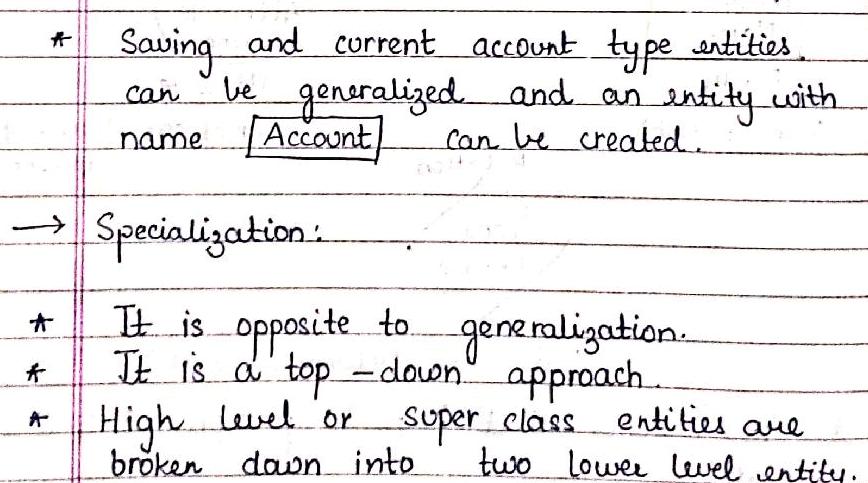 * Saving and current account type entities.
can be generalized and an entity with
name Account can be created.
→ Specialization:
* It is opposite to generalization.
* It is a top-down approach.
* High level or super class entities are
broken down into two lower level entity.